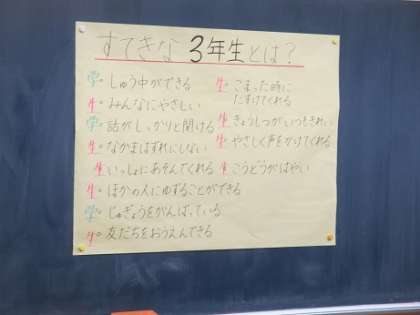 すてきな3年生とは？
学。しゅう中ができる
生。みんなにやさしい
学。話がしっかりと聞ける
生。なかまはずれにしない
生。いっしょにあそんでくれる
生。ほかの人にゆずることができる
学。じゅぎょうをがんばっている
生。友だちをおうえんできる
生。こまった時に
たすけてくれる
生。きょうしつがいつもきれい
生。やさしく声をかけてくれる
生。こうどうがはやい